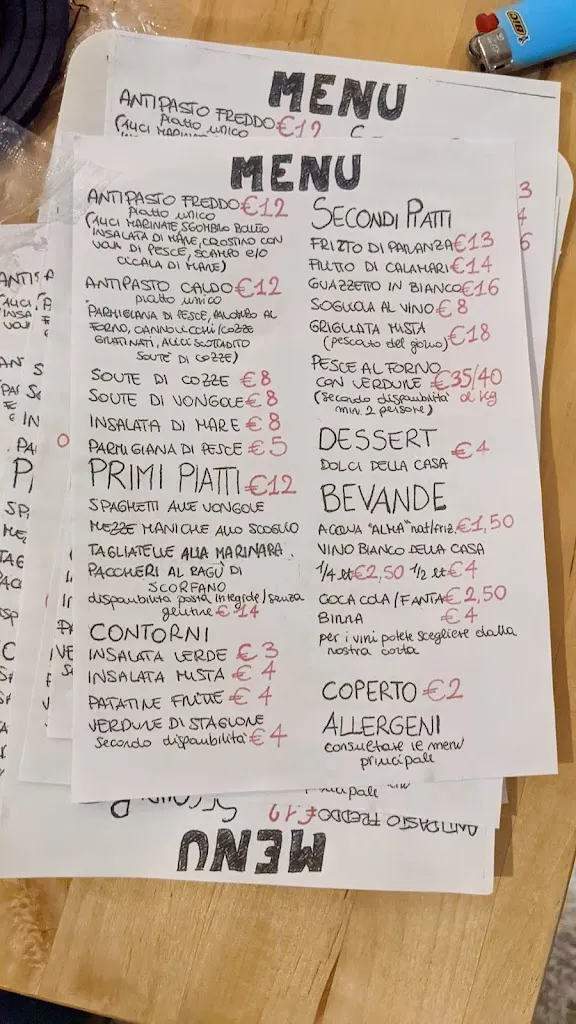 MENU
ANTIPASTO FREDDO €12
MENU
ANTIPASTO FREDDO €12
piatto unico
(ALICI MARINATE SGOMBRO POLITO
INSALATA DI MARE, CROSTINO CON
UOVA DI PESCE, SCAMPO E/O
CICALA DI MARE)
ANTIPASTO CALDO €12
piatto unico
PARMIGIANA DI PESCE,
FORNO, CANNOLICCHI/COZZE
GRATINATI, ALICI SCOTTADITO
SOUTÈ DI COZZE)
SOUTE DI COZZE €8
SOUTE DI VONGOLE €8
INSALATA DI MARE €8
PARMIGIANA DI PESCE €5
PRIMI PIATTI €12
SPAGHETTI ALLE VONGOLE
MEZZE MANICHE ALLO SCOGLIO
TAGLIATELLE ALLA MARINARA
PACCHERI AL RAGÙ DI
SCORFANO
disponibilità pasta integrale/senza
glutine €14
CONTORNI
INSALATA VERDE €3
INSALATA MISTA €4
PATATINE FRITTE €4
VERDURE DI STAGIONE
secondo disponibilità €4
SECONDI PIATTI
FRITTO DI PARANZA €13
FRITTO DI CALAMARI €14
GUAZZETTO IN BIANCO €16
SOGLIOLA AL VINO €8
GRIGLIATA MISTA €18
(pescato del giorno)
PESCE AL FORNO
CON VERDURE €35/40
(secondo disponibilità al kg
min. 2 persone)
DESSERT
DOLCI DELLA CASA €4
BEVANDE
ACQUA "ALMA" nat/friz. €1,50
VINO BIANCO DELLA CASA
1/4 lt €2,50 1/2 lt €4
COCA COLA/FANTA €2,50
BIRRA €4
per i vini potete scegliere dalla
nostra carta
COPERTO €2
ALLERGENI
consultare le menù
principale
ANTIPASTO FREDDO €12
MENU
BIC